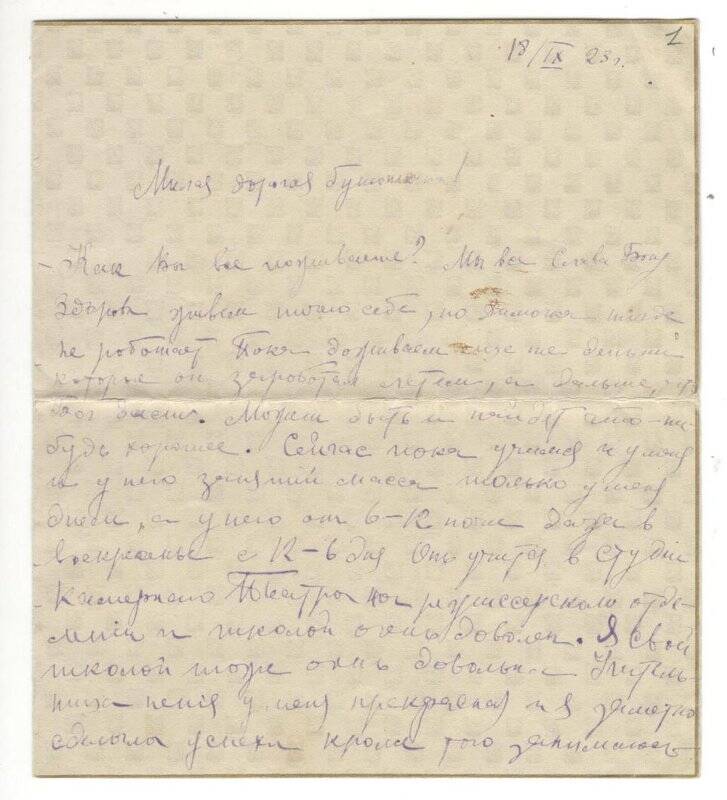 1
18/IX 23 г.
Милая дорогая бумончика!
Как Вы все поживаете? Мы все Слава Богу
Здоровы живем ничего себе, но Димочка нигде
не работает Пока доживаем еще те деньги
которые он заработал летом, а дальше, что
Бог даст. Может быть и найдет что-ни-
будь хорошее. Сейчас пока учимся и у меня
и у него занятий масса только у меня
днем, а у него от 6-12 ночи даже в
воскресенье с 12-6 дня Он учится в студiи
Камернаго Театра на режиссерском отде-
ленiи и школой очень доволен. Я свой
школой тоже очень довольна Учитель-
ница пенiя у меня прекрасная и я заметно
сделала успехи кроме того занимаюсь